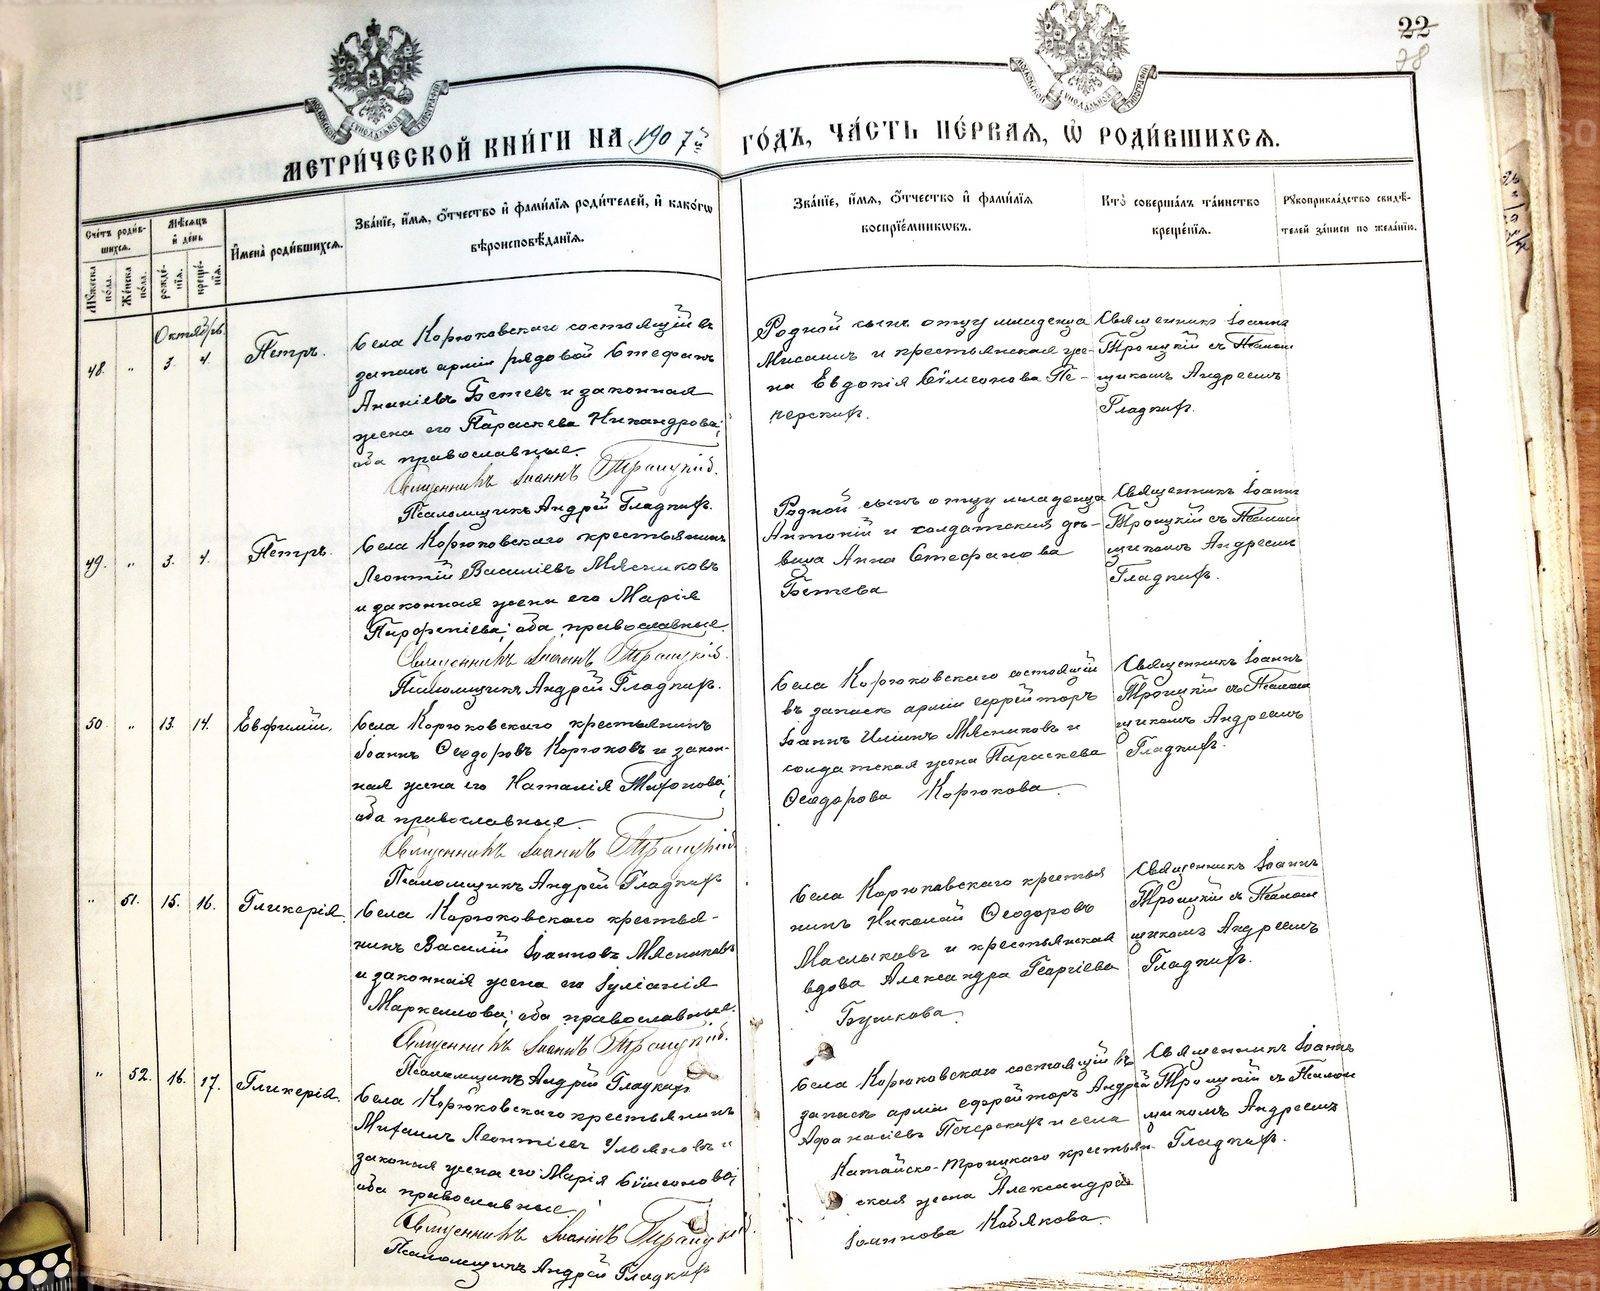 22
78
МЕТРИ́ЧЕСКОЙ КНИ́ГИ НА 1907й ГО́ДЪ, ЧА́СТЬ ПЕ́РВАЯ, Ѿ РОДИ́ВШИХСѦ.
Сче́тъ роди́в-
шихсѧ.
Мꙋ́жеска по́ла.
Же́нска по́ла.
Мѣ́сѧцъ
и҆ де́нь
рожде́-
нїѧ.
креще́-
нїѧ.
И҆мена̀ роди́вшихсѧ.
Зва́нїе, и҆́мѧ, ѻ҆́тчество и҆ фами́лїѧ роди́телей, и҆ како́гѡ
вѣроисповѣ́данїѧ.
Зва́нїе, и҆́мѧ, ѻ҆́тчество и҆ фами́лїѧ
воспрїе́мникѡвъ.
Кто̀ соверша́лъ та́инство
креще́нїѧ.
Рꙋкоприкла́дство свидѣ́-
телей за́писи по жела́нїю.
Октябрь
48. „ 3. 4. Петръ.
Села Корюковскаго состоящій въ
запасѣ арміи рядовой Стефанъ
Ананіевъ Бетевъ и законная
жена его Параскева Никандрова;
оба православные.
Священникъ Іоаннъ Троицкій.
Псаломщикъ Андрей Гладкихъ.
Родной сынъ отцу младенца
Мисаилъ и крестьянская же-
на Евдокія Сѵмеонова Пе-
черскихъ.
Священникъ Іоаннъ
Троицкій съ Псалом
щикомъ Андреемъ
Гладкихъ.
49. „ 3. 4. Петръ.
Села Корюковскаго крестьянинъ
Леонтій Василіевъ Мясниковъ
и законная жена его Марія
Парфеніева; оба православные.
Священникъ Іоаннъ Троицкій.
Псаломщикъ Андрей Гладкихъ.
Родной сынъ отцу младенца
Антоній и солдатская дѣ-
вица Анна Стефанова
Бетева
Священникъ Іоаннъ
Троицкій съ Псалом
щикомъ Андреемъ
Гладкихъ.
50. „ 13. 14. Евфимій.
Села Корюковскаго крестьянинъ
Іоаннъ Ѳеодоровъ Корюковъ и закон-
ная жена его Наталія Тихонова;
оба православные.
Священникъ Іоаннъ Троицкій
Псаломщикъ Андрей Гладкихъ
Села Корюковскаго состоящій
въ запасѣ арміи ефрейторъ
Іоаннъ Иліинъ Мясниковъ и
солдатская жена Параскева
Ѳеодорова Корюкова.
Священникъ Іоаннъ
Троицкій съ Псалом
щикомъ Андреемъ
Гладкихъ.
„ 51. 15. 16. Гликерія.
Села Корюковскаго крестья-
нинъ Василій Іоанновъ Мясниковъ
и законная жена его Іуліанія
Маркеллова; оба православные.
Священникъ Іоаннъ Троицкій.
Псаломщикъ Андрей Гладкихъ
Села Корюковскаго крестья
нинъ Николай Ѳеодоровъ
Маслыковъ и крестьянская
вдова Александра Георгіева
Бушкова.
Священникъ Іоаннъ
Троицкій съ Псалом
щикомъ Андреемъ
Гладкихъ.
„ 52. 16. 17. Гликерія.
Села Корюковскаго крестьянинъ
Михаилъ Леонтіевъ Ульяновъ и
законная жена его Марія Сѵмеонова;
оба православные.
Священникъ Іоаннъ Троицкій.
Псаломщикъ Андрей Гладкихъ
Села Корюковскаго состоящій въ
запасѣ арміи ефрейторъ Андрей
Афанасіевъ Печерскихъ и села
Катайско-Троицкаго крестьян-
ская жена Александра
Іоаннова Кобякова.
Священникъ Іоаннъ
Троицкій съ Псалом
щикомъ Андреемъ
Гладкихъ.
METRIKI.GASO